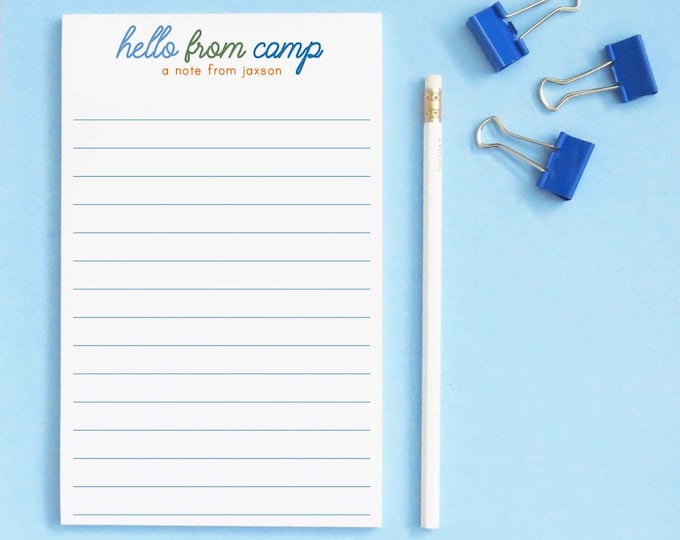 hello from camp
a note from jaxson
TUESDAY